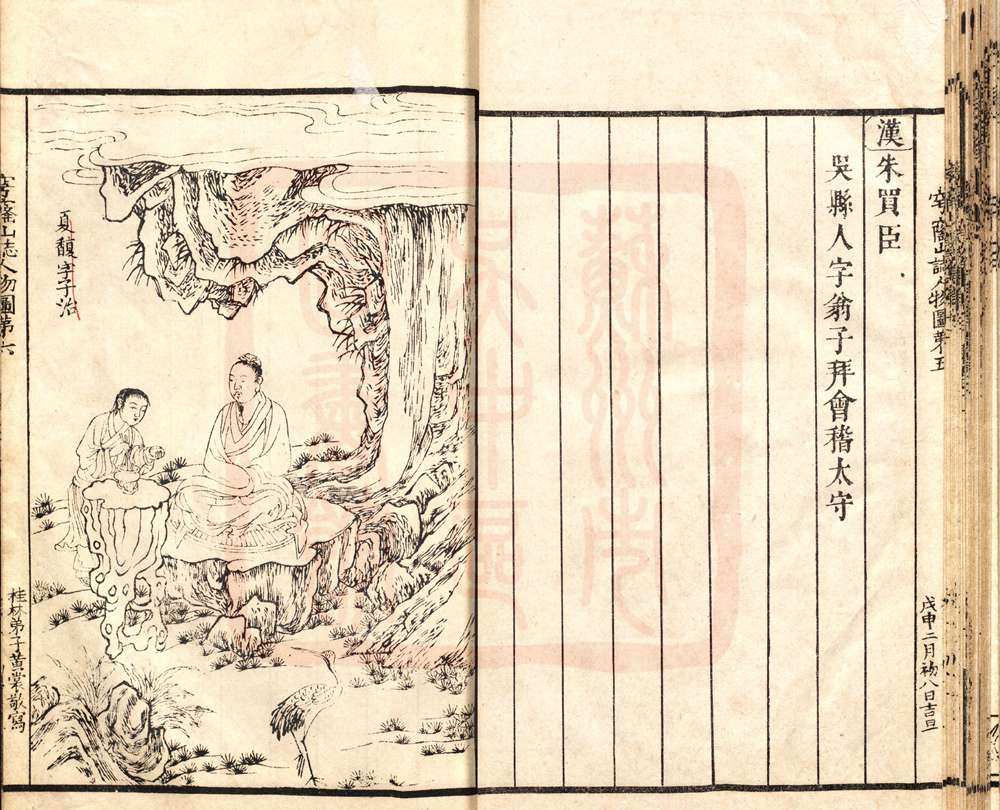 漢朱買臣
吳縣人字翁子拜會稽太守
窑蔭山志人物圖第五
戊申二月初八日吉旦
夏馥字子治
桂林弟子黃裳敬寫
山志人物圖第六